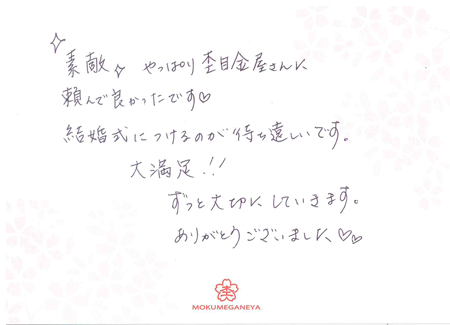 素敵 やっぱり 杢目金屋さんに
頼んで良かったです♡
結婚式につけるのが待ち遠しいです。
大満足!!
ずっと大切にしていきます。
ありがとうございました♡♡
杢
MOKUMEGANEYA